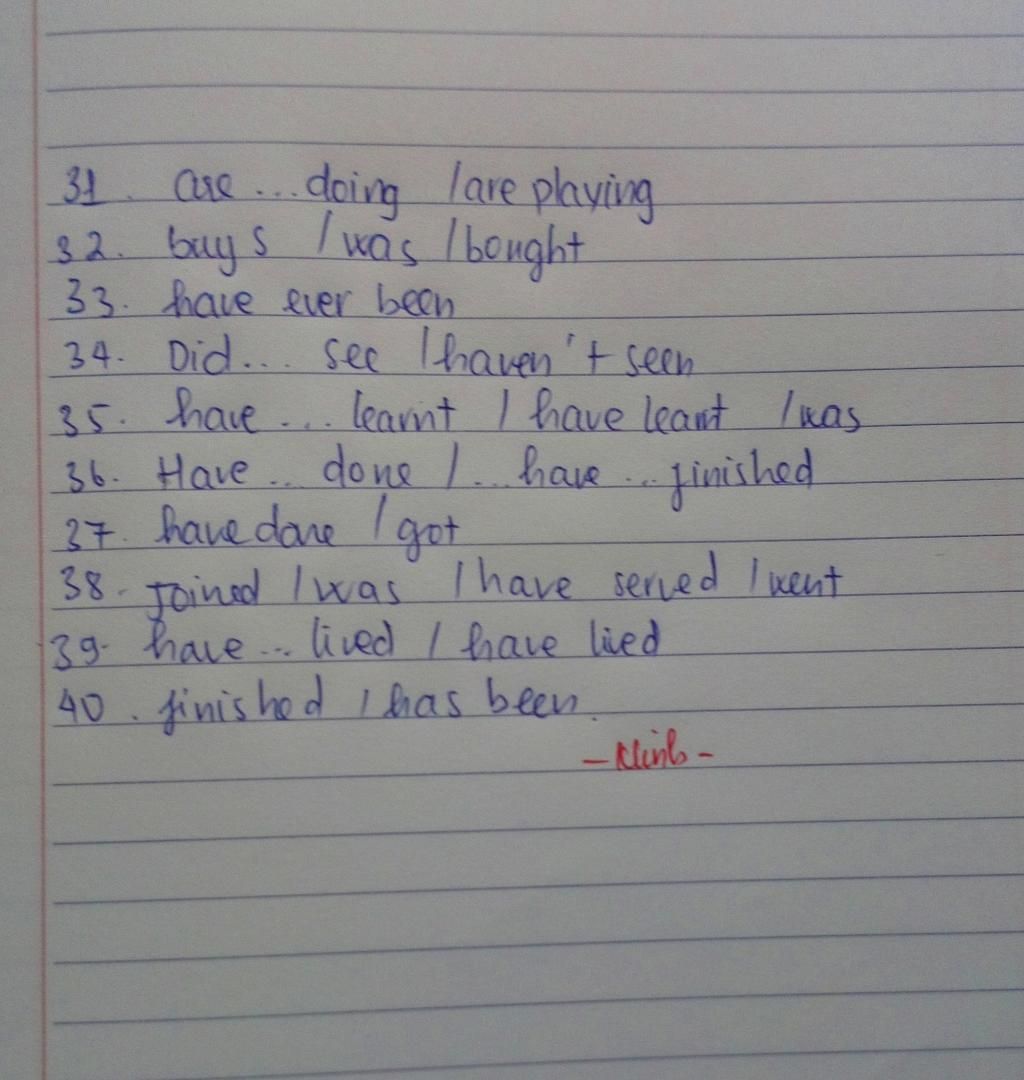 31. are ... doing / are playing
32. buys / was / bought
33. have ever been
34. Did... see / haven't seen
35. have ... learnt / have leant / was
36. Have ... done / ... have ... finished
37. have done / got
38. Joined / was / have served / went
39. have ... lived / have lied
40. finished / has been.